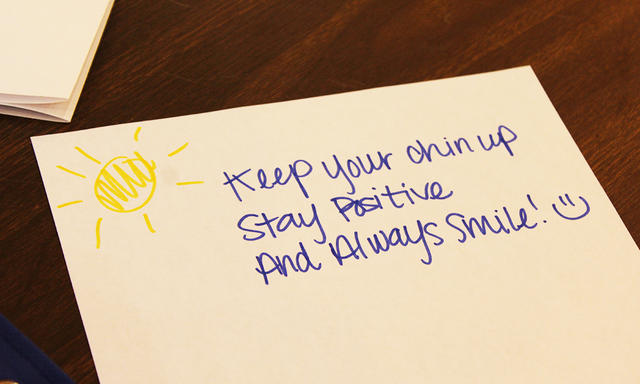 Keep your chin up
Stay Positive
And Always Smile!